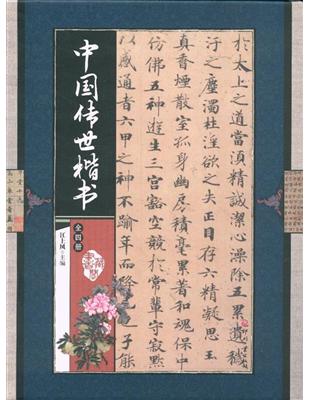 中国传世楷书
全四册
江上风·主编
於太上之道當湏精誠潔心澡除五累遺穢
汙之塵濁杜淫欲之失正目存六精凝思玉
真香煙散室孤身幽房積毫累著和魂保中
仿佛五神遊生三宮豁空競於常輩守寂默
以感通者六甲之神不踰年而降子能